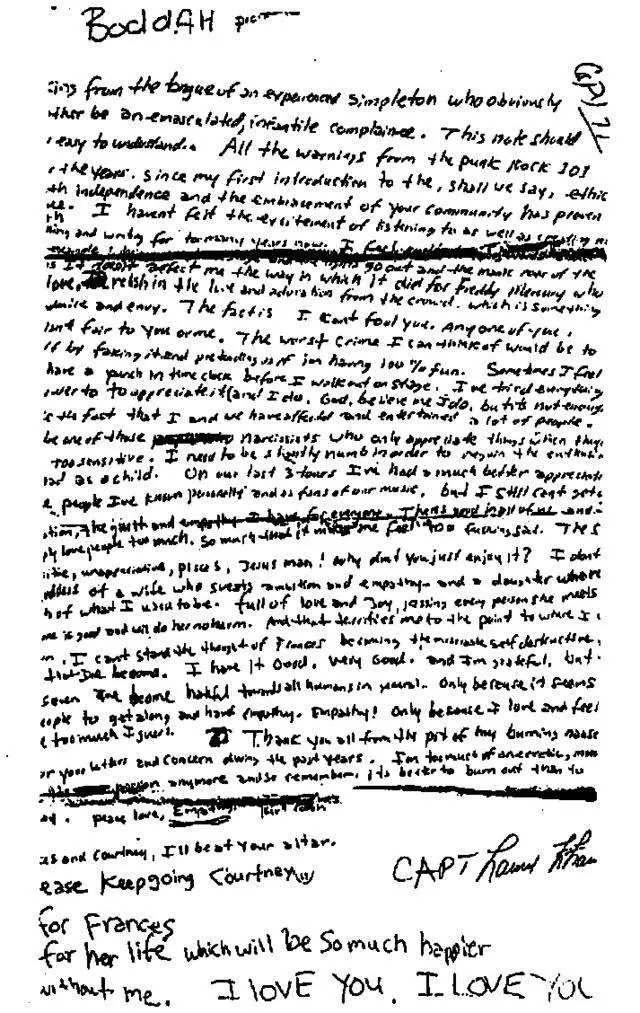 BoddAH
ing from the tongue of an experienced simpleton who obviously
ther be an emasculated, infantile complainee. This note should
easy to understand. All the warnings from the punk Rock 101
the years. Since my first introduction to the, shall we say, ethic
th independence and the embracement of your community has proven
I havent felt the excitement of listening to as well as creating
and writing for too many years now. I feel
go out and the manic roar of the
is It doesnt affect me the way in which it did for freddy Mercury who
love, relish in the love and adoration from the crowd. which is something
admire and envy. The fact is I cant fool you. Any one of you.
isnt fair to you or me. The worst crime I can think of would be to
by faking it and pretending as if im having 100% fun. Sometimes I feel
have a punch in time clock before I walk out on stage. I've tried everything
power to appreciate it (and I do, God, believe me I do, but its not enough
the fact that I and we have affected and entertained a lot of people.
be one of those narcissists who only appreciate things when they
too sensitive. I need to be slightly numb in order to regain the
had as a child. On our last 3 tours I've had a much better
people I've known personally and as fans of our music, but I still cant get
the guilt and empathy I have for everyone. Theres good in all of us and
ly love people too much. So much that it makes me feel too fucking sad. The s
unappreciative, pisces, Jesus man! why dont you just enjoy it? I dont
of a wife who sweats ambition and empathy and a daughter who
h of what I used to be. full of love and Joy, kissing every person she meets
one is good and will do her no harm. And that terrifies me to the point to where I
I cant stand the thought of Frances becoming the miserable self destructive,
that I've become. I have it Good. Very Good. and I'm grateful, but
seven I've become hateful towards all humans in general. Only because it seems
people to get along and have empathy. Empathy! Only because I love and feel
e too much I guess. Thank you all from the pit of my burning nause
for your letters and concern during the past years. I'm too much of an erratic, moo
passion anymore and so remember, its better to burn out than to
peace love, Empathy. Kurt Cobain
es and Courtney, I'll be at your altar.
ease Keep going Courtney
for Frances
for her life which will be So much happier
without me. I LOVE YOU. I LOVE YOU
CAPT